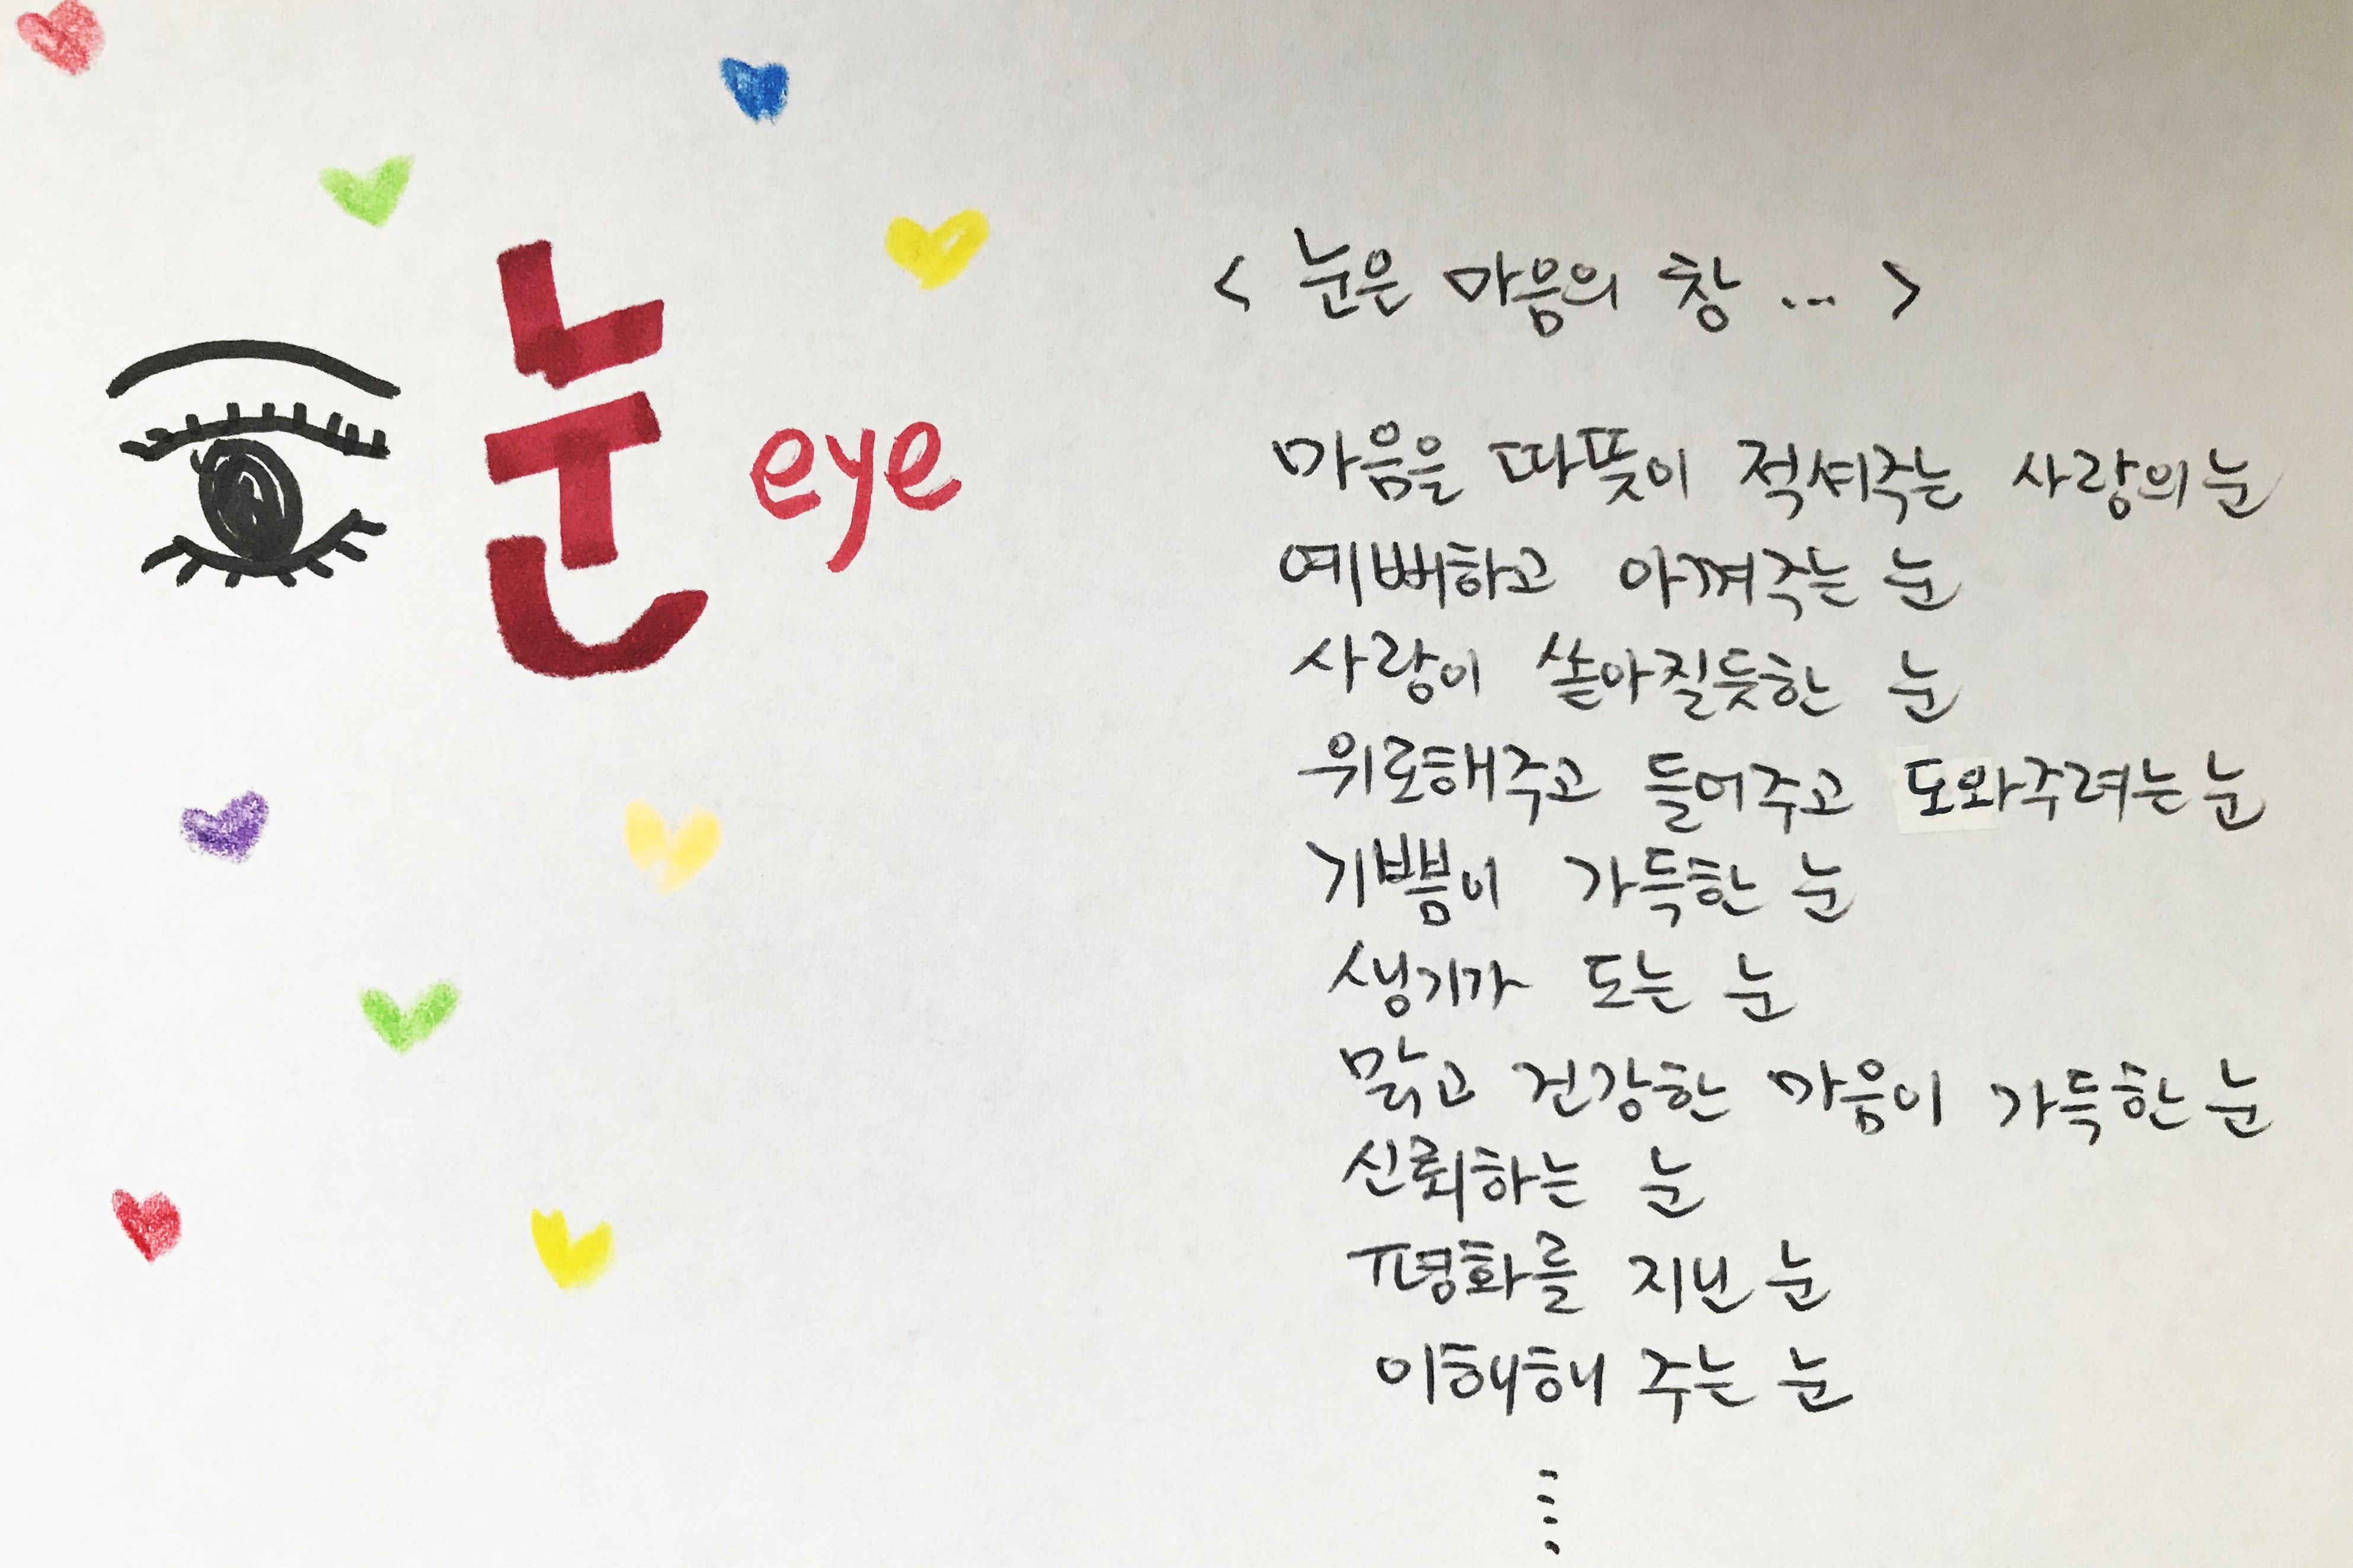 눈
eye
< 눈은 마음의 창 ... >
마음을 따뜻이 적셔주는 사랑의 눈
예뻐하고 아껴주는 눈
사랑이 쏟아질듯한 눈
위로해주고 들어주고 도와주려는 눈
기쁨이 가득한 눈
생기가 도는 눈
맑고 건강한 마음이 가득한 눈
신뢰하는 눈
평화를 지닌 눈
이해해 주는 눈